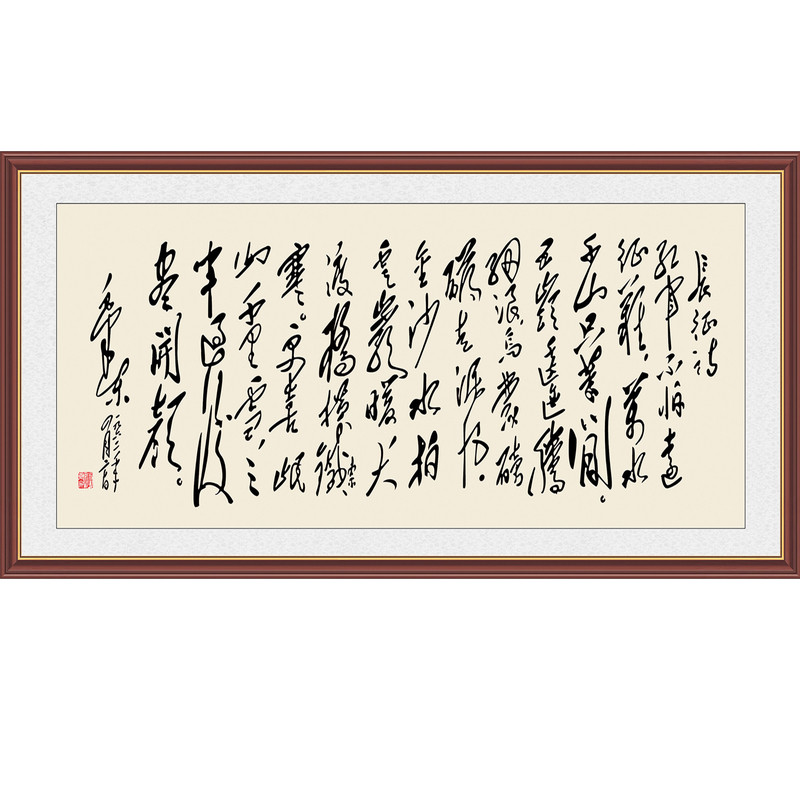 長征詩
紅軍不怕遠
征難，萬水
千山只等閒。
五嶺逶迤騰
細浪，烏蒙磅
礴走泥丸。
金沙水拍
雲崖暖，大
渡橋橫鐵索
寒。更喜岷
山千里雪，三
軍過後
盡開顏。
毛澤東
一九六二年